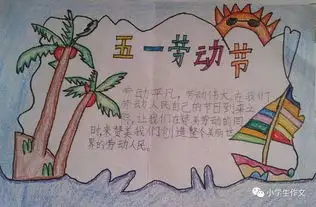 五一劳动节
劳动平凡，劳动伟大。在我们
劳动人民自己的节日到来之
际，让我们在赞美劳动的同
时，来赞美我们创造整个美丽世
界的劳动人民。
小学生作文